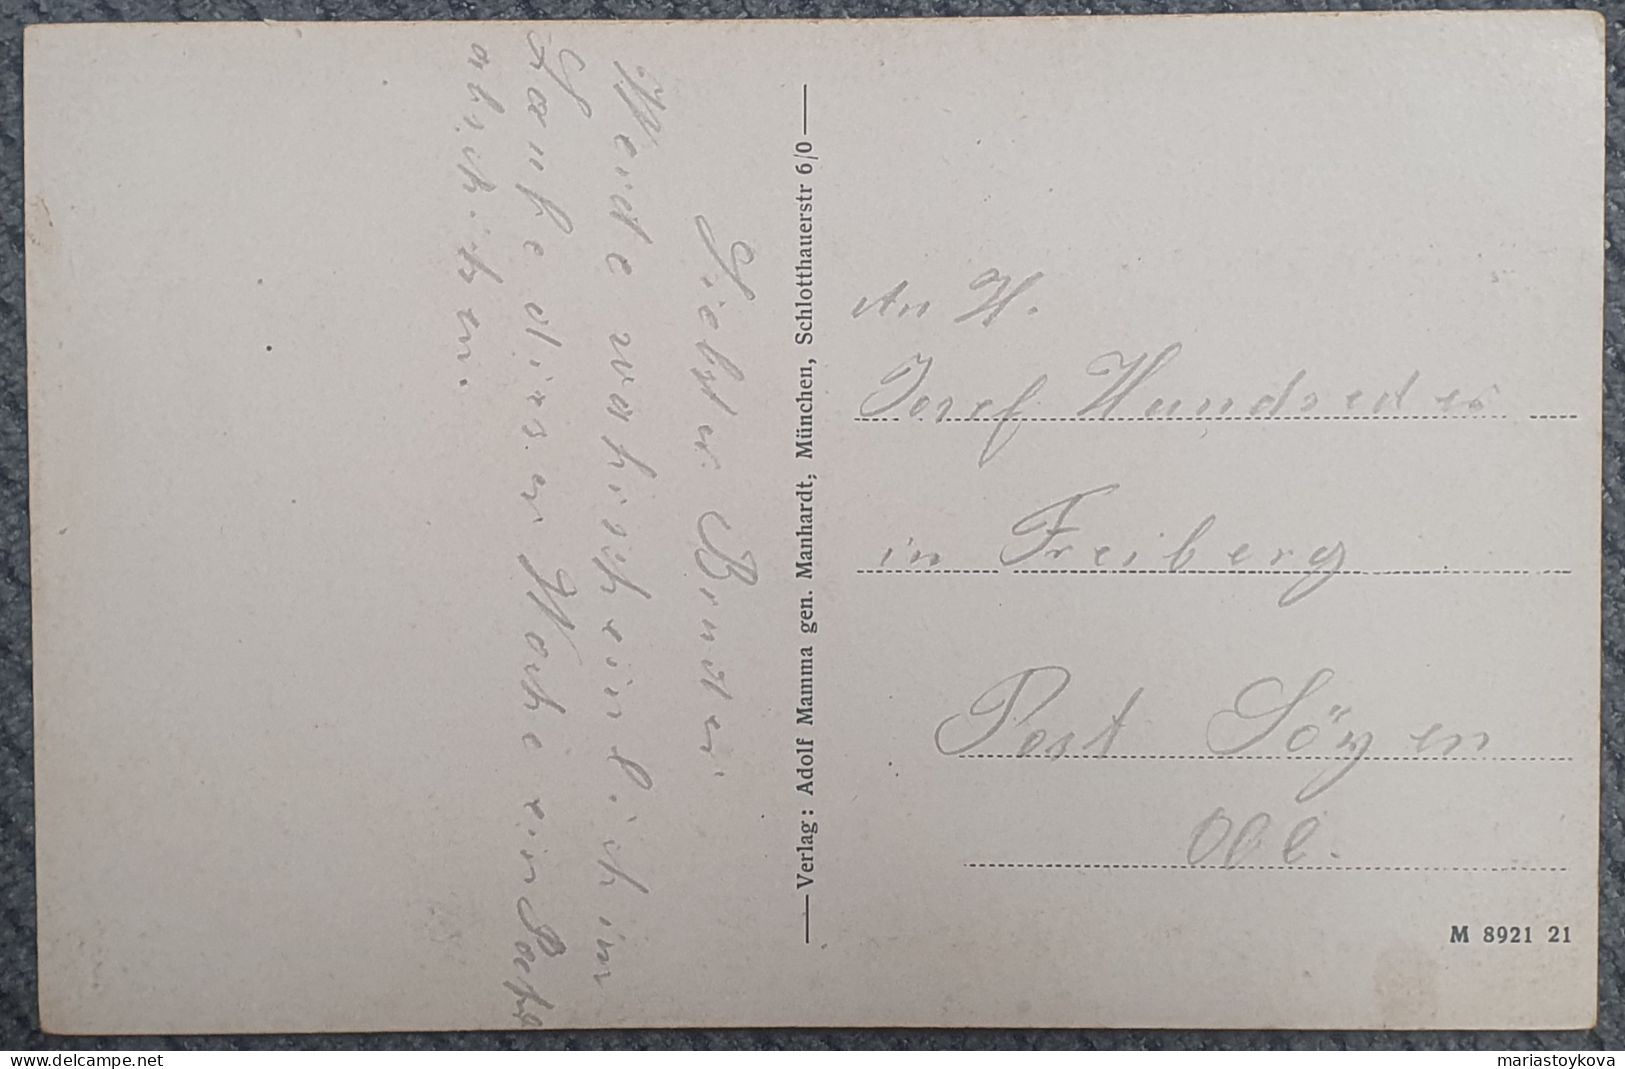 Liebster Bruder
Werde wahrscheinlich im
Laufe dieser Woche ein Packet
abschicken.
Verlag: Adolf Mamma gen. Manhardt, München, Schlotthauerstr 6/0
An H.
Josef Hundseder
in Freiberg
Post Söyen
Obb.
M 8921 21
mariastoykova